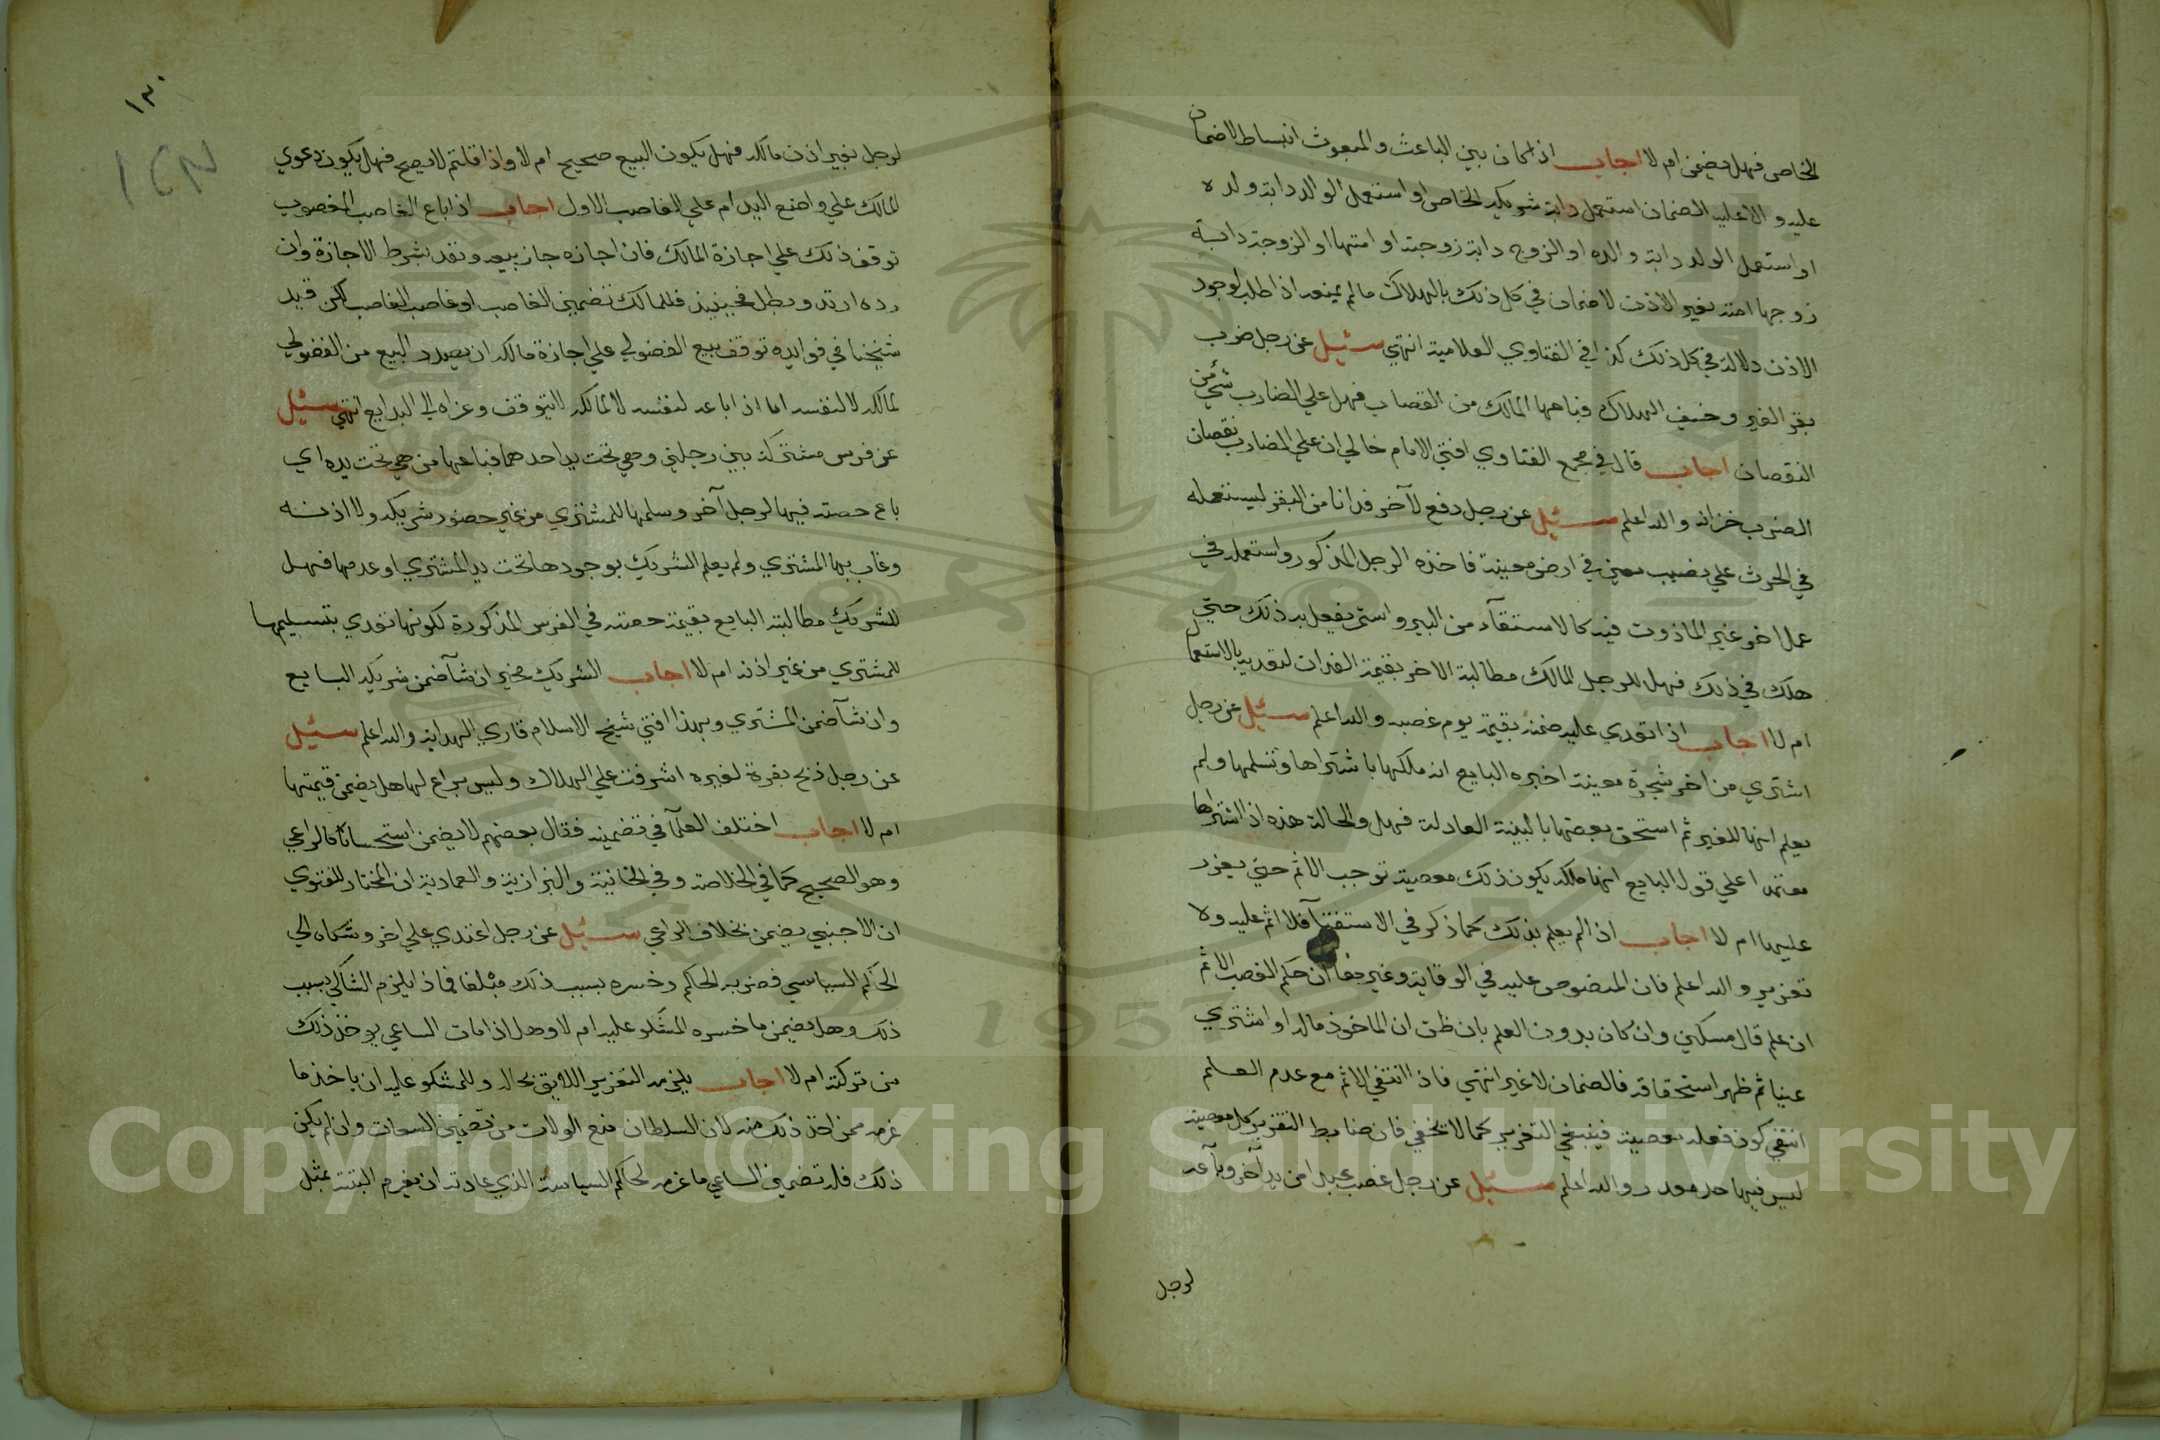 الخاص فهل يضمن ام لا اجاب اذا كان بين الباعث والمبعوث انبساط لا ضمان
عليه والا عليه الضمان استعمل دابة شريكه الخاص او استعمل الوالد دابة ولده
او استعمل الولد دابة والده او الزوج دابة زوجته او امتها او الزوجة دابة
زوجها امته بغير الاذن لا ضمان في كل ذلك بالهلاك ما لم يمنعه اذا طلب لوجود
الاذن دلالة في كل ذلك كذا في الفتاوي العلامية انتهي سئيل عن رجل ضرب
بقر الغير وخيف الهلاك فباعها المالك من القصاب فهل علي الضارب شئ من
النقصان اجاب قال في مجمع الفتاوي افتي الامام خالي ان علي الضارب نقصان
الضرب خزانه والله اعلم سئيل عن رجل دفع لآخر فدانا من البقر ليستعمله
في الحرث علي نصيب معين في ارض معينة فاخذه الرجل المذكور واستعمله في
عمل اخر غير الماذون فيه كالاستقآء من البير واستمر يفعل به ذلك حتي
هلك في ذلك فهل للرجل المالك مطالبة الاخر بقيمة الفدان لتعديه بالاستعمال
ام لا اجاب اذا تعدي عليه ضمنه بقيمته يوم غصبه والله اعلم سئيل عن رجل
اشتري من اخر شجرة معينة اخبره البايع انه ملكها باشتراها وتسلمها ولم
يعلم انها للغير ثم استحق بعضها بالبينة العادلة فهل والحالة هذه اذا اشتراها
معتمدا علي قول البايع انها ملكه يكون ذلك معصية توجب الاثم حتي يعزر
عليها ام لا اجاب اذا لم يعلم بذلك كما ذكر في الاستفتآء فلا اثم عليه ولا
تعزير والله اعلم فان المنصوص عليه في الوقاية وغيرها ان حكم الغصب الاثم
ان علم قال مسكين وان كان بدون العلم بان ظن ان الماخوذ ماله او اشتري
عينا ثم ظهر استحقاقه فالضمان لا غير انتهي فاذا انتفي الاثم مع عدم العلم
انتفي كون فعله معصية فينبغي التعزير كما لا يخفي فان ضابط التعزير كل معصية
ليس فيها حد مقدر والله اعلم سئيل عن رجل غصب عجلا من يد آخر وباعه
لرجل
١٣٠
١٢٣
لرجل بغير اذن مالكه فهل يكون البيع صحيح ام لا واذا قلتم لا يصح فهل يكون دعوي
المالك علي واضع اليد ام علي الغاصب الاول اجاب اذا باع الغاصب المغصوب
توقف ذلك علي اجازة المالك فان اجازه جاز بيعه ونفذ بشرط الاجازة وان
رده ارتد وبطل فحينيذ فللمالك تضمين الغاصب او غاصب الغاصب لكن قيد
شيخنا في فوايده توقف بيع الفضولي علي اجازة مالكه ان يصدر البيع من الفضولي
لمالكه لا لنفسه اما اذا باعه لنفسه لا لمالكه لا يتوقف وعزاه الي البدايع انتهي سئيل
عن فرس مشتركة بين رجلين وهي تحت يد احدهما فباعها من هي تحت يده اي
باع حصته فيها لرجل آخر وسلمها للمشتري من غير حضور شريكه ولا اذنه
وغاب بها المشتري ولم يعلم الشريك بوجودها تحت يد المشتري او عدمها فهل
للشريك مطالبة البايع بقيمة حصته في الفرس المذكورة لكونها تعدي بتسليمها
للمشتري من غير اذنه ام لا اجاب الشريك مخير ان شآ ضمن شريكه البايع
وان شآ ضمن المشتري وبهذا افتي شيخ الاسلام قاري الهدايه والله اعلم سئيل
عن رجل ذبح بقرة لغيره اشرفت علي الهلاك وليس براع لها هل يضمن قيمتها
ام لا اجاب اختلف العلمآ في تضمينه فقال بعضهم لا يضمن استحسانا كالراعي
وهو الصحيح كما في الخلاصة وفي الخانية والبزازية والعمادية ان المختار للفتوي
ان الاجنبي يضمن بخلاف الراعي سئيل عن رجل اعتدي علي اخر وشكاه الي
الحاكم السياسي فضربه الحاكم وخسره بسبب ذلك مبلغا فماذا يلزم الشاكي بسبب
ذلك وهل يضمن ما خسره المشكو عليه ام لا وهل اذا مات الساعي يوخذ ذلك
من تركته ام لا اجاب يلزمه التعزير اللايق بحاله وللمشكو عليه ان ياخذ ما
غرمه ممن اخذ ذلك منه لان السلطان منع الولات من تضمين السعات وان لم يكن
ذلك فله تضمين الساعي ما غرمه لحاكم السياسة الذي عادته ان يغرم البتة بمثل
Copyright © King Saud University
1957